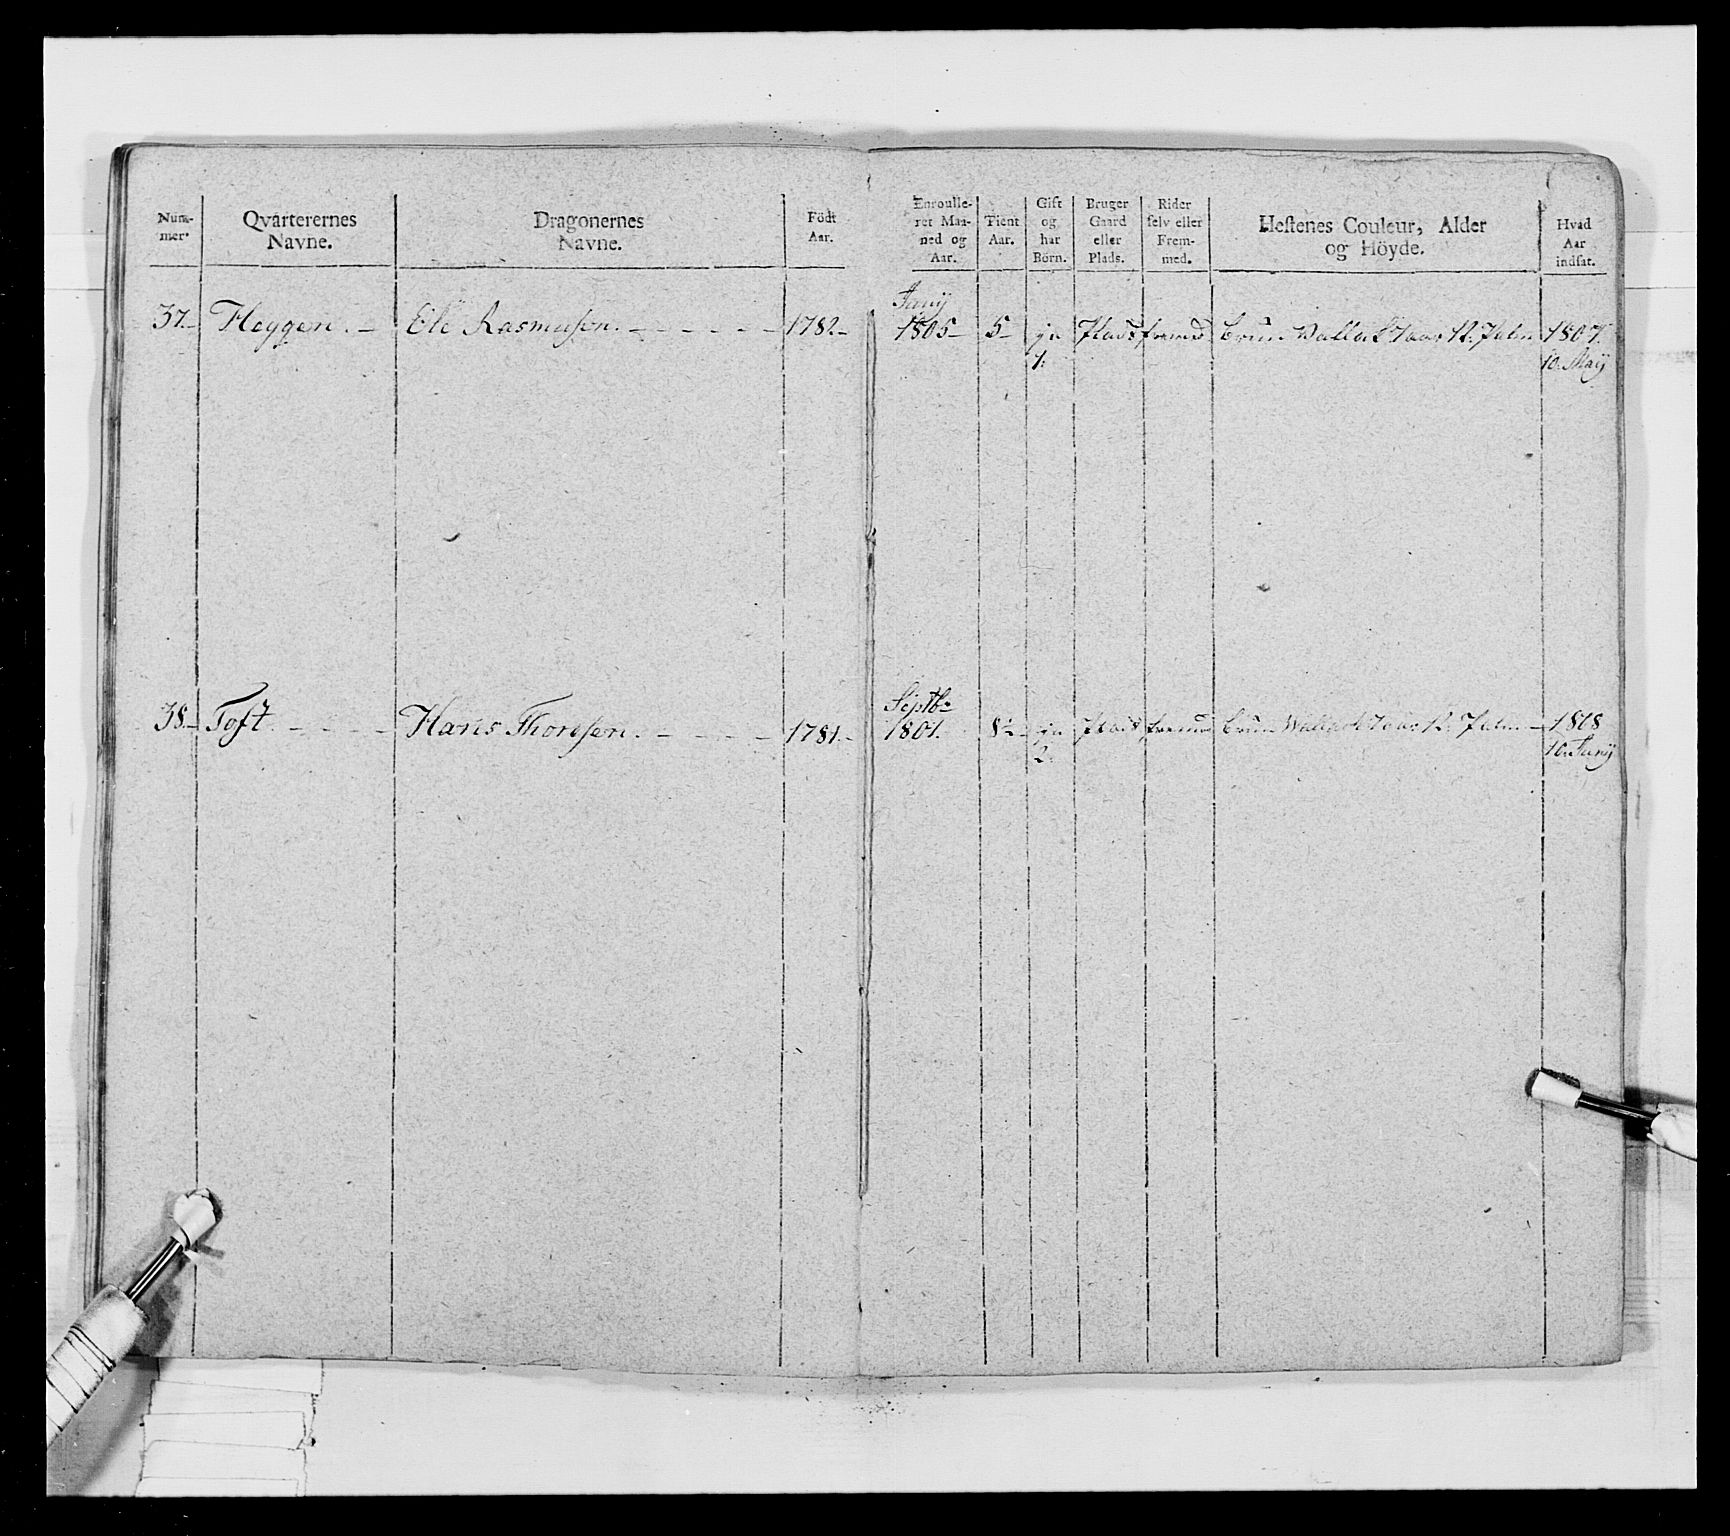 Num-
mer.
Qvarterernes
Navne.
Dragonernes
Navne.
Födt
Aar.
Enroulle-
ret Maa-
ned og
Aar.
Tient
Aar.
Gift
og
har
Börn.
Bruger
Gaard
eller
Plads.
Rider
selv eller
Frem-
med.
Hestenes Couleur, Alder
og Höyde.
Hvad
Aar
indsat.
37. Heggen. Ole Rasmusen. 1782
Junij
1805 5 ja Plads fremd brun Wallak 7 aar 12. Palm 1807.
1. 10. Maij
38. Toft. Hans Thoresen. 1781.
Septbr
1801. 8½ ja Plads fremd brun Wallak 7 aar 12. Palm 1808
2. 10. Junij